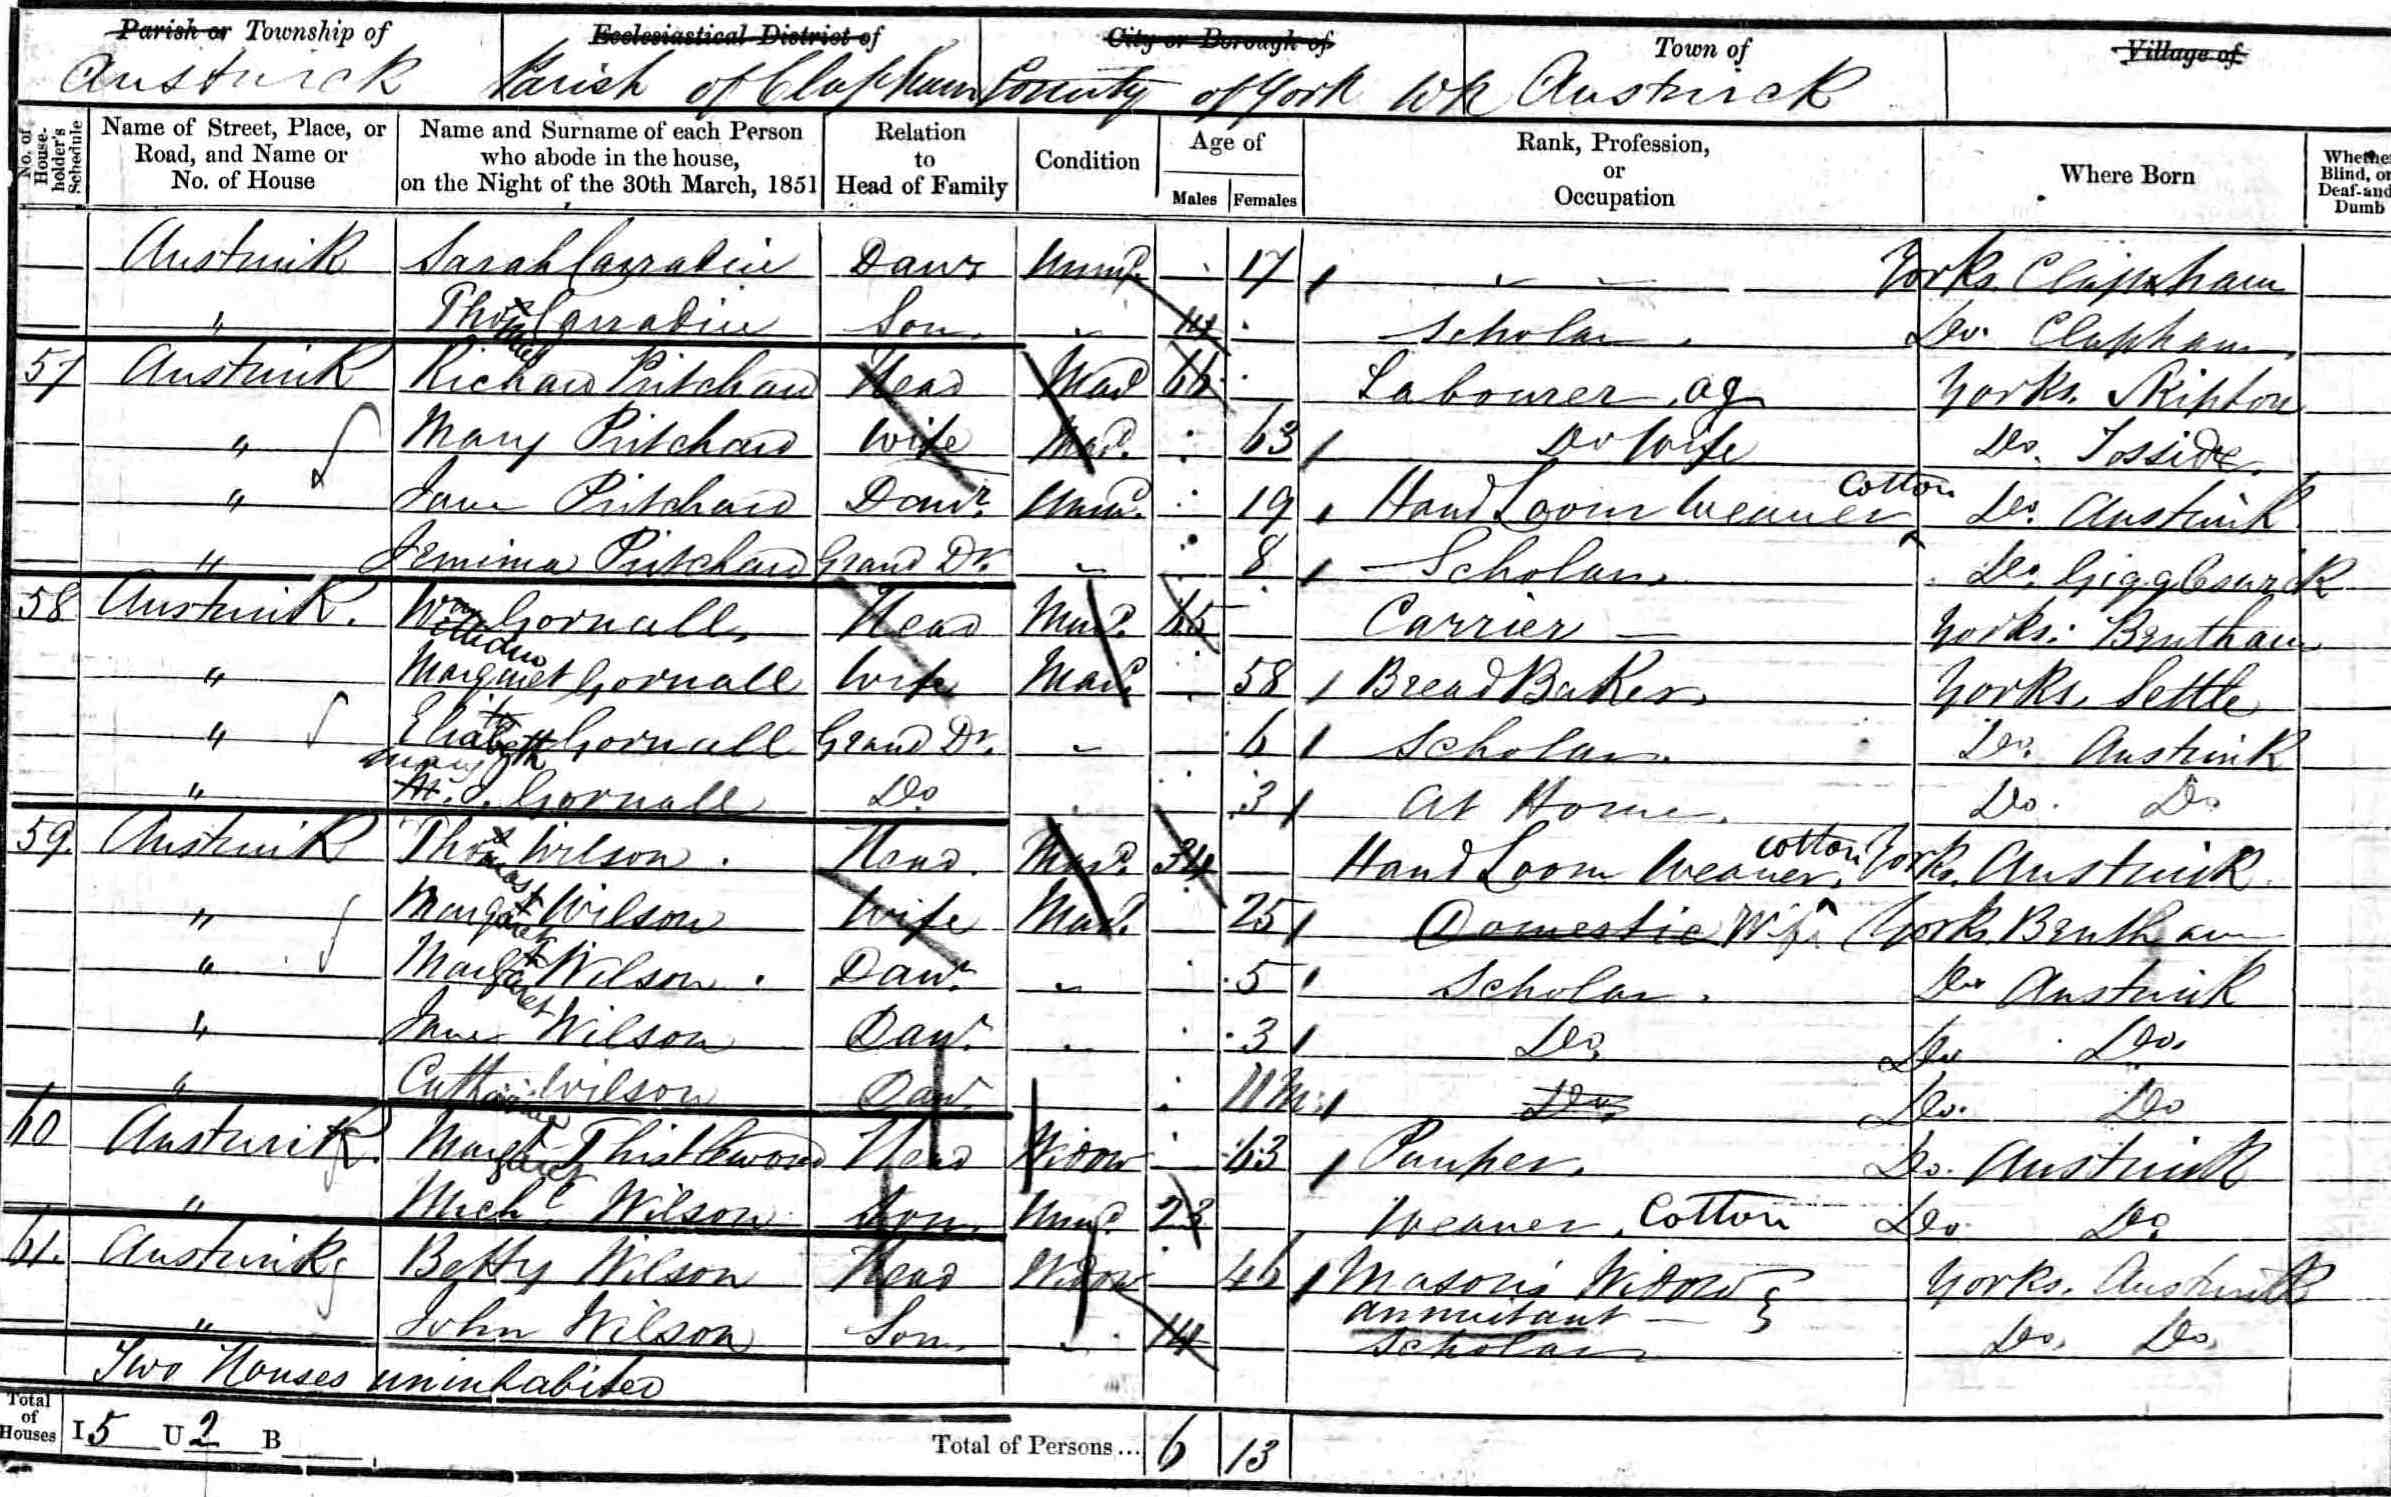 Parish or Township of Ecclesiastical District of City or Borough of Town of Village of
Austwick Parish of Clapham County of York WR Austwick
No. of House-holder's Schedule
Name of Street, Place, or Road, and Name or No. of House
Name and Surname of each Person who abode in the house, on the Night of the 30th March, 1851
Relation to Head of Family
Condition
Age of
Males Females
Rank, Profession, or Occupation
Where Born
Whether Blind, or Deaf-and-Dumb
Austwick Sarah Carradice Dawr Unmd. 17 Yorks. Clapham
" Thos Carradice Son 14 Scholar. Do. Clapham.
57 Austwick Richard Pritchard Head Mard 66 Labourer, ag Yorks. Skipton
" Mary Pritchard Wife Mard. 63 Do Wife Do. Tosside.
" Jane Pritchard Dawr. Unmd. 19 Hand Loom Weaver Cotton Do. Austwick
" Jemima Pritchard Grand Dr. 8 Scholar. Do. Giggleswick
58 Austwick. Wm Gornall. Head Mard. 65 Carrier Yorks. Bentham
" Margaret Gornall Wife Mard. 58 Bread Baker. Yorks. Settle
" Elizabeth Gornall Grand Dr. 6 Scholar. Do. Austwick
" M. Gornall Do 3 At Home. Do. Do
59. Austwick Thos Wilson. Head. Mard. 34 Hand Loom Weaver, cotton York. Austwick.
" Margt Wilson Wife Mard. 25 Domestic Wife Yorks. Bentham
" Margt Wilson. Dawr. 5 Scholar. Do Austwick
" Jane Wilson Dawr. 3 Do. Do Do.
" Catharine Wilson Dawr. 11 M. Do. Do. Do
60 Austwick. Margt Thistlewood Head Widow 63 Pauper. Do. Austwick
" Michl Wilson Son. Unmd. 23 Weaver, Cotton Do. Do.
61. Austwick Betty Wilson Head Widow 46 Mason's Widow Yorks. Austwick
annuitant
" John Wilson Son. 14 Scholar. Do. Do.
Two Houses uninhabited
Total of Houses I 5 U 2 B Total of Persons... 6 13